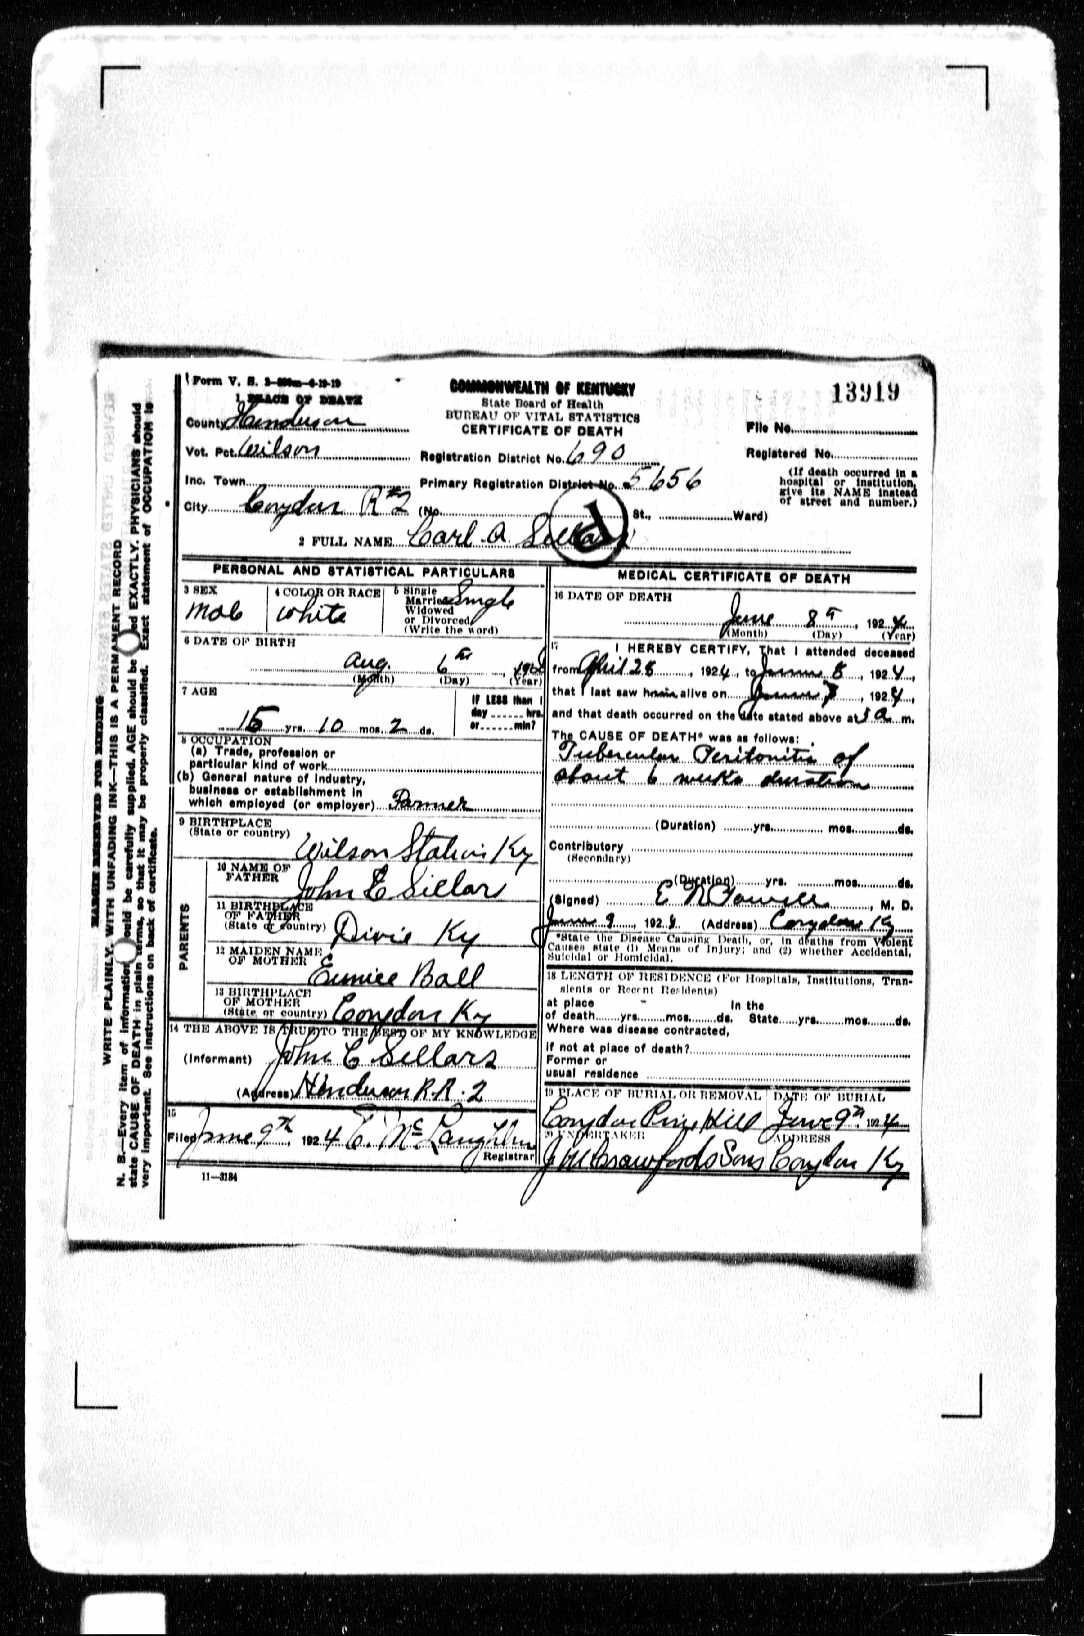 Form V. S.
13919
1 PLACE OF DEATH
COMMONWEALTH OF KENTUCKY
State Board of Health
BUREAU OF VITAL STATISTICS
CERTIFICATE OF DEATH
County Henderson
File No.
Vot. Pct. Wilson
Registration District No. 690
Registered No.
Inc. Town
Primary Registration District No. 5656
(If death occurred in a hospital or institution, give its NAME instead of street and number.)
City Corydon R#2 (No. St., Ward)
P
2 FULL NAME Carl A. Sellars
PERSONAL AND STATISTICAL PARTICULARS
3 SEX
Male
4 COLOR OR RACE
White
5 Single
Married
Widowed
or Divorced
(Write the word)
Single
6 DATE OF BIRTH
Aug. 6th, 190
(Month) (Day) (Year)
7 AGE
15 yrs. 10 mos. 2 ds.
If LESS than 1
day hrs.
or min?
8 OCCUPATION
(a) Trade, profession or
particular kind of work
(b) General nature of industry,
business or establishment in
which employed (or employer) Farmer
9 BIRTHPLACE
(State or country)
Wilson Station Ky
PARENTS
10 NAME OF
FATHER
John C Sellars
11 BIRTHPLACE
OF FATHER
(State or country) Dixie Ky
12 MAIDEN NAME
OF MOTHER
Eunice Ball
13 BIRTHPLACE
OF MOTHER
(State or country) Corydon Ky
14 THE ABOVE IS TRUE TO THE BEST OF MY KNOWLEDGE
(Informant) John C Sellars
(Address) Henderson R.R. 2
15
Filed June 9th, 1924 E. McLaughlin
Registrar
11—3184
MEDICAL CERTIFICATE OF DEATH
16 DATE OF DEATH
June 8th, 1924
(Month) (Day) (Year)
17 I HEREBY CERTIFY, That I attended deceased
from April 28, 1924, to June 8, 1924,
that I last saw him alive on June 7, 1924,
and that death occurred on the date stated above at 3 a m.
The CAUSE OF DEATH* was as follows:
Tubercular Peritonitis of
about 6 weeks duration
(Duration) yrs. mos. ds.
Contributory
(Secondary)
(Duration) yrs. mos. ds.
(Signed) E N Powell, M. D.
June 9, 1924 (Address) Corydon Ky
*State the Disease Causing Death, or, in deaths from Violent
Causes state (1) Means of Injury; and (2) whether Accidental,
Suicidal or Homicidal.
18 LENGTH OF RESIDENCE (For Hospitals, Institutions, Tran-
sients or Recent Residents)
at place In the
of death yrs. mos. ds. State yrs. mos. ds.
Where was disease contracted,
if not at place of death?
Former or
usual residence
19 PLACE OF BURIAL OR REMOVAL DATE OF BURIAL
Corydon Pine Hill June 9th, 1924
20 UNDERTAKER ADDRESS
J M Crawford & Sons Corydon Ky
MARGIN RESERVED FOR BINDING
WRITE PLAINLY, WITH UNFADING INK—THIS IS A PERMANENT RECORD
N. B.—Every item of information should be carefully supplied. AGE should be stated EXACTLY. PHYSICIANS should
state CAUSE OF DEATH in plain terms, so that it may be properly classified. Exact statement of OCCUPATION is
very important. See instructions on back of certificate.